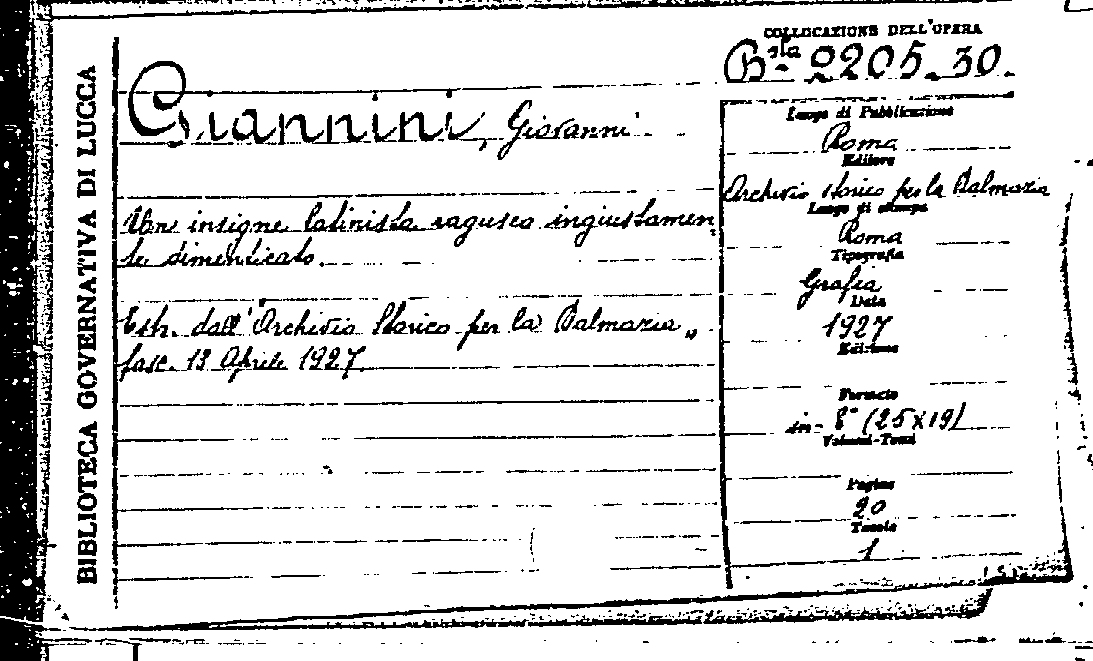 BIBLIOTECA GOVERNATIVA DI LUCCA
COLLOCAZIONE DELL'OPERA
Bsta 2205.30.
Giannini, Giovanni
Un insigne latinista raguseo ingiustamen
te dimenticato.
Estr. dall'"Archivio Storico per la Dalmazia„
fasc. 13 Aprile 1927.
Luogo di Pubblicazione
Roma
Editore
Archivio storico per la Dalmazia
Luogo di stampa
Roma
Tipografia
Grafia
Data
1927
Edizione
Formato
in-8° (25x19)
Volumi-Tomi
Pagine
20
Tavole
1